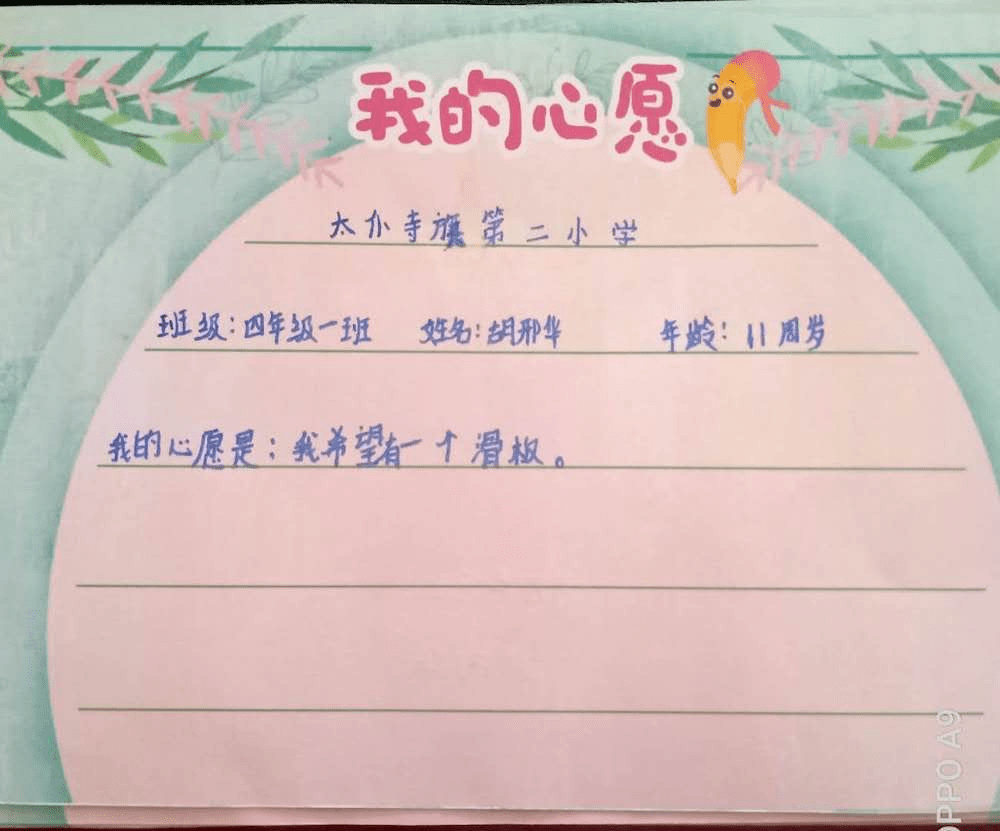 我的心愿
太仆寺旗第二小学
班级：四年级一班 姓名：胡邢华 年龄：11周岁
我的心愿是：我希望有一个滑板。
OPPO A9